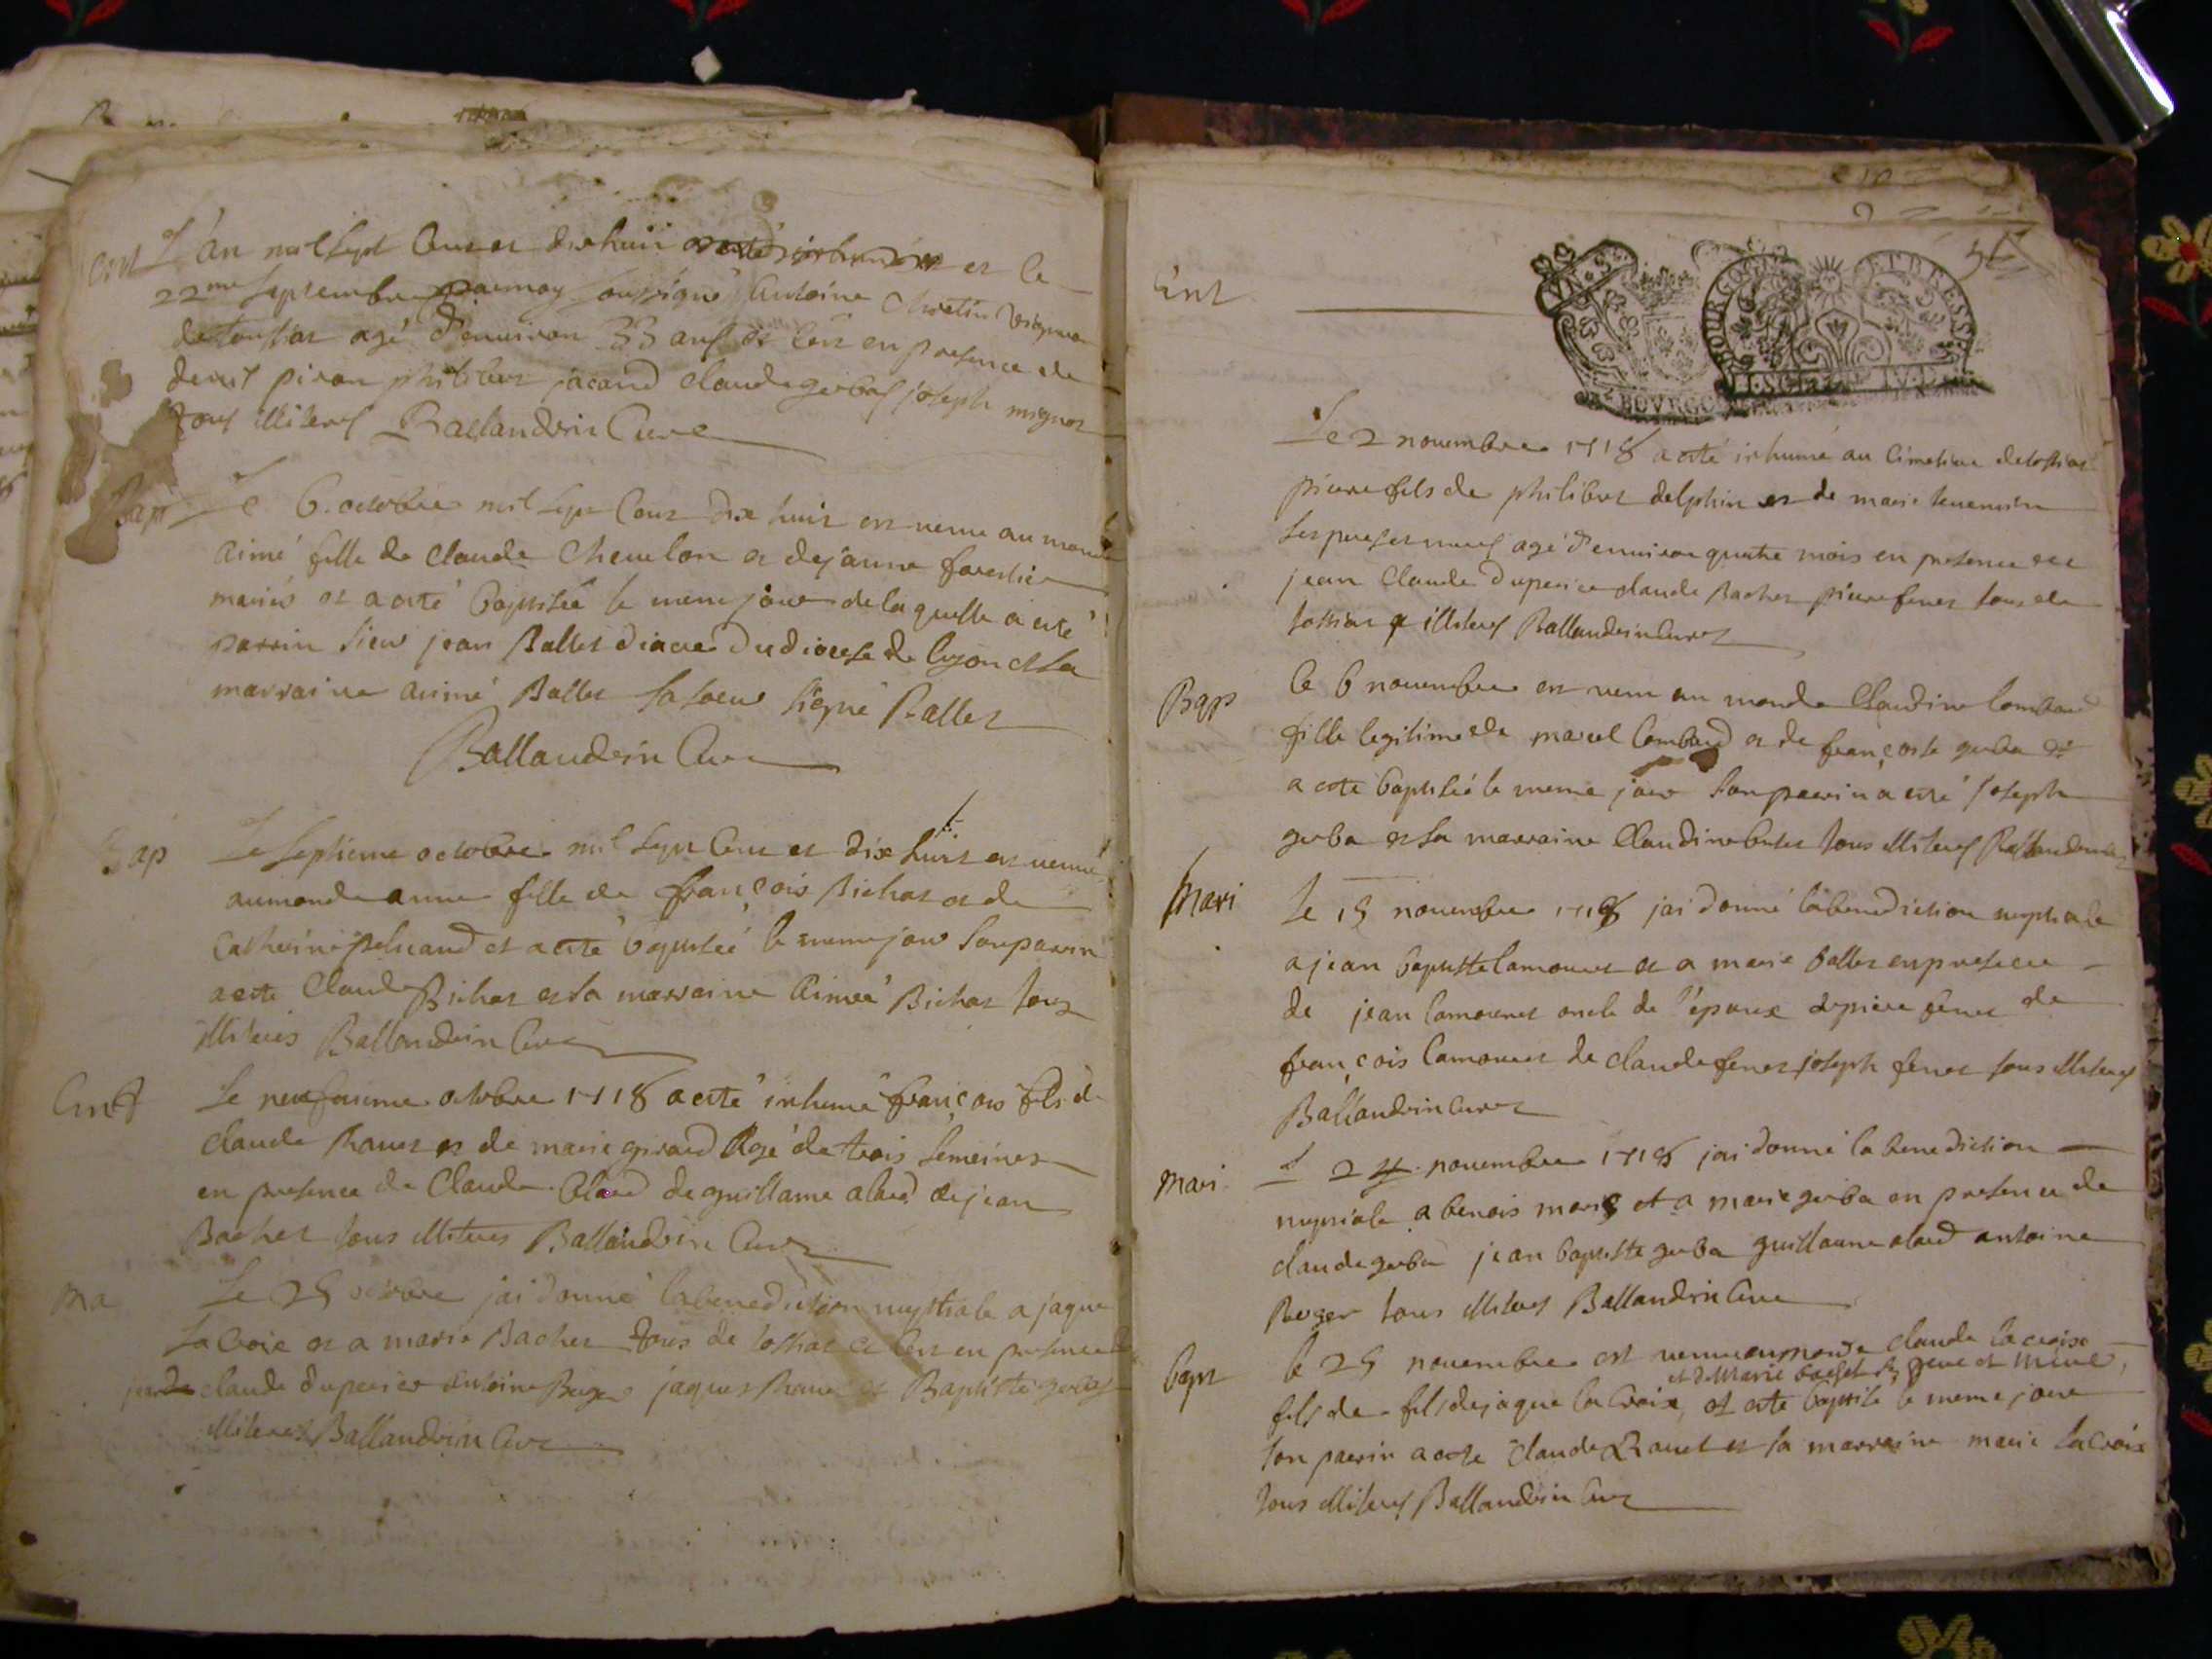 L'an mil sept cens et dix huit et le
22me septembre par moy soussigné Antoine
de agé d'environ 33 ans et ce en presence de
denis piron philibert jacand claude gerbas joseph mignot
tous illiteres Ballandrin Curé
Bap Le 6 octobre mil sept cens dix huit est venu au monde
aimé fille de claude chevelon et de janne forestier
mariés et a esté baptisée le meme jour de laquelle a esté
parrin sieur jean Ballet diacre du diocese de lyon et la
marraine aimé Ballet sa soeur signé Ballet
Ballandrin Curé
Bap Le septieme octobre mil sept cens et dix huit est venue
au monde anne fille de françois Bichat et de
catherine et a esté baptisée le meme jour son parrin
a esté Claude Bichat et sa marraine aimée Bichat tous
illiteres Ballandrin Curé
Ent Le neufvieme octobre 1718 a esté inhumé françois fils de
claude Ravet et de marie girard agé de trois semeines
en presence de Claude alard de guillame alard de jean
Bachet tous illiteres Ballandrin Curé
Ma Le 25 octobre jai donné la benediction nuptiale a jaque
la Croix et a marie Bachet tous de et ce en presence
claude duperier antoine Roger jaques Ravet et Baptiste gerbas
illiteres Ballandrin Curé
Ent
BOURGOGNE ET BRESSE
Le 2 novembre 1718 a esté inhumé au cimetiere de
pierre fils de philibert delphin et de marie
ses pere et mere agé d'environ quatre mois en presence de
jean Claude duperier claude Bachet pierre feret tous de
illiteres Ballandrin Curé
Bap le 6 novembre est venu au monde Claudine lombard
fille legitime de marcel lombard et de françoise gerba et
a esté baptisée le meme jour son parrin a esté joseph
gerba et sa marraine Claudine tous illiteres Ballandrin
Mari Le 15 novembre 1718 jai donné la benediction nuptiale
a jean baptiste lamouret et a marie ballet en presence
de jean lamouret oncle de l'époux de piere feret de
françois lamouret de claude feret joseph feret tous illiteres
Ballandrin Curé
Mari Le 24 novembre 1718 jai donné la benediction
nuptiale a benois et a marie gerba en presence de
claude gerba jean baptiste gerba guillaume alard antoine
Roger tous illiteres Ballandrin Curé
bapt le 25 novembre est venu au monde claude la croix
et de Marie bachet ses pere et mere,
fils de fils de jaque la Croix, et esté baptisé le meme jour
son parrin a esté Claude Ravet et sa marreine marie la Croix
tous illiteres Ballandrin Curé